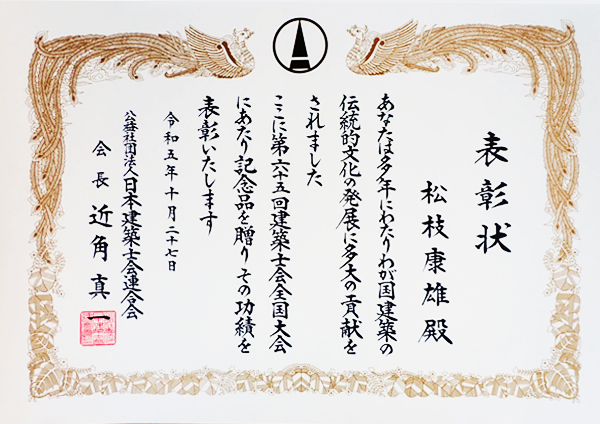 表彰状
松枝康雄殿
あなたは多年にわたりわが国建築の
伝統的文化の発展に多大の貢献を
されました
ここに第六十五回建築士会全国大会
にあたり記念品を贈りその功績を
表彰いたします
令和五年十月二十七日
公益社団法人日本建築士会連合会
会長近角真一